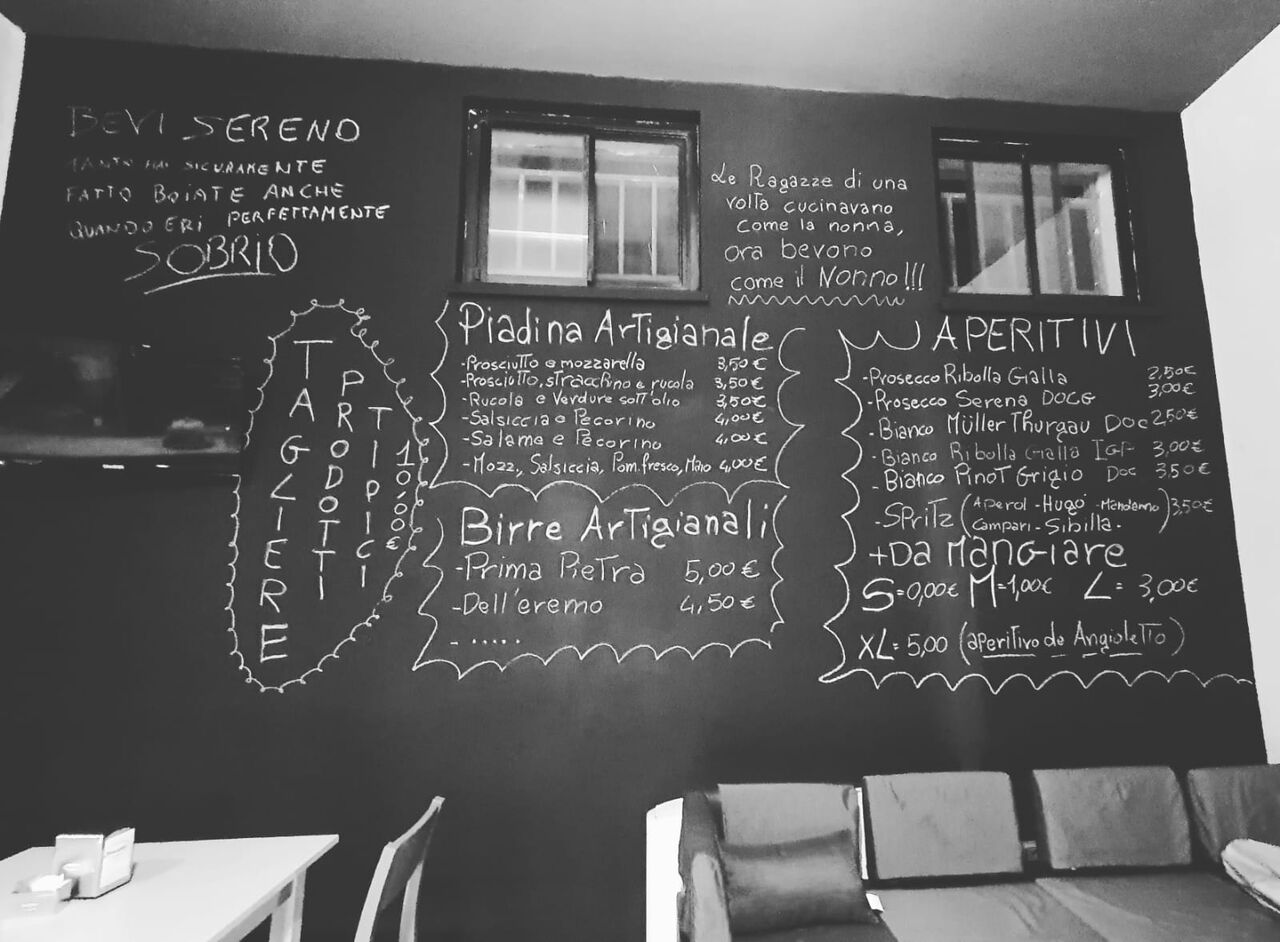 BEVI SERENO
TANTO HAI SICURAMENTE
FATTO BOIATE ANCHE
QUANDO ERI PERFETTAMENTE
SOBRIO
Le Ragazze di una
volta cucinavano
come la nonna,
ora bevono
come il Nonno!!!
TAGLIERE
PRODOTTI
TIPICI
10,00€
Piadina Artigianale
-Prosciutto e mozzarella 3,50€
-Prosciutto, stracchino e rucola 3,50€
-Rucola e Verdure sott'olio 3,50€
-Salsiccia e Pecorino 4,00€
-Salame e Pecorino 4,00€
-Mozz., Salsiccia, Pom. fresco, Maio 4,00€
Birre Artigianali
-Prima Pietra 5,00€
-Dell'eremo 4,50€
- .....
APERITIVI
-Prosecco Ribolla Gialla 2,50€
-Prosecco Serena DOCG 3,00€
-Bianco Müller Thurgau Doc 2,50€
-Bianco Ribolla Gialla IGP 3,00€
-Bianco Pinot Grigio Doc 3,50€
-Spritz (Aperol - Hugo - 3,50€
Campari - Sibilla.)
+DA MANGIARE
S=0,00€ M=1,00€ L=3,00€
XL=5,00 (aperitivo de Angioletto)